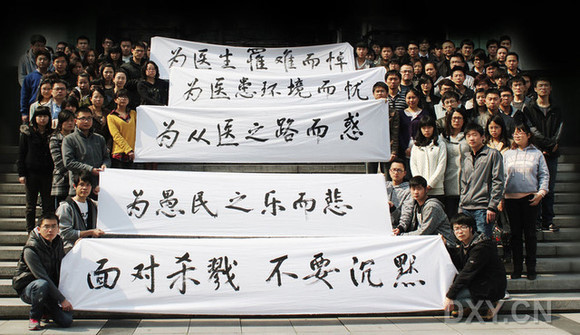 为医生罹难而悼
为医患环境而忧
为从医之路而惑
为愚民之乐而悲
面对杀戮 不要沉默
DXY.CN